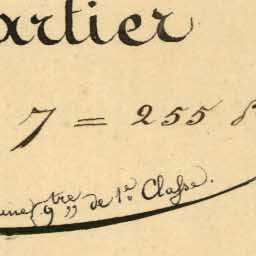 artier
7 = 255
9 tre de 1e Classe.